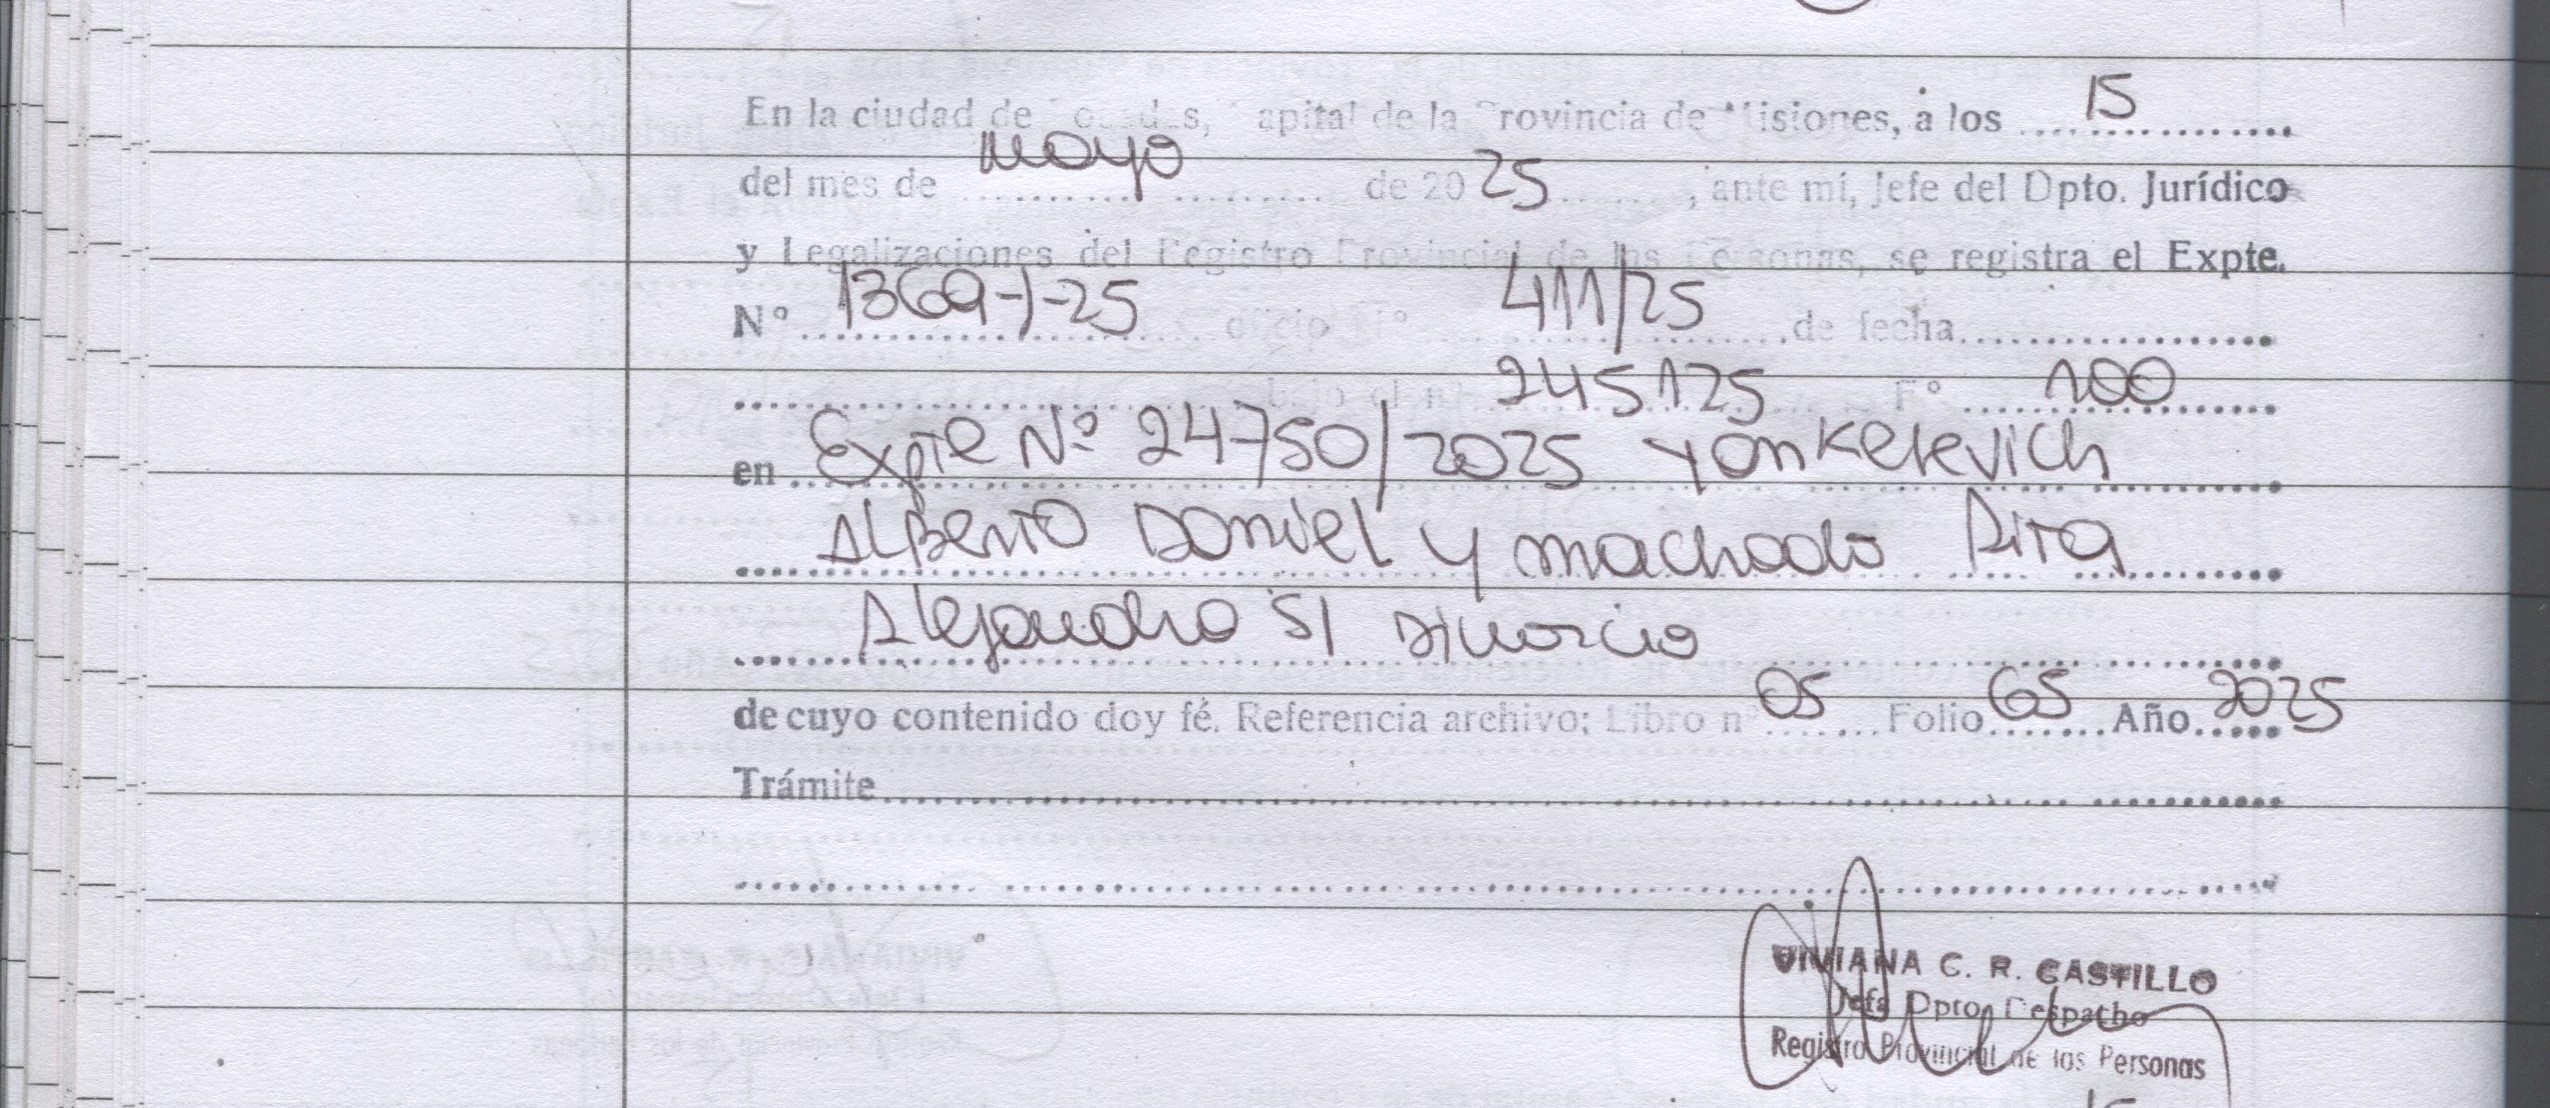 En la ciudad de Posadas, Capital de la Provincia de Misiones, a los 15
del mes de mayo de 2025, ante mí, Jefe del Dpto. Jurídico
y Legalizaciones del Registro Provincial de las Personas, se registra el Expte.
N° 1369-1-25 oficio N° 411/25 de fecha
bajo el n° 245125 F° 100
en Expte Nº 24750/2025 Yankelevich
Alberto Daniel y machado Rita
Alejandra S/ Divorcio
de cuyo contenido doy fé. Referencia archivo: Libro n° 05 Folio 65 Año 2025
Trámite
VIVIANA C. R. CASTILLO
Jefa Dpto. Despacho
Registro Provincial de las Personas